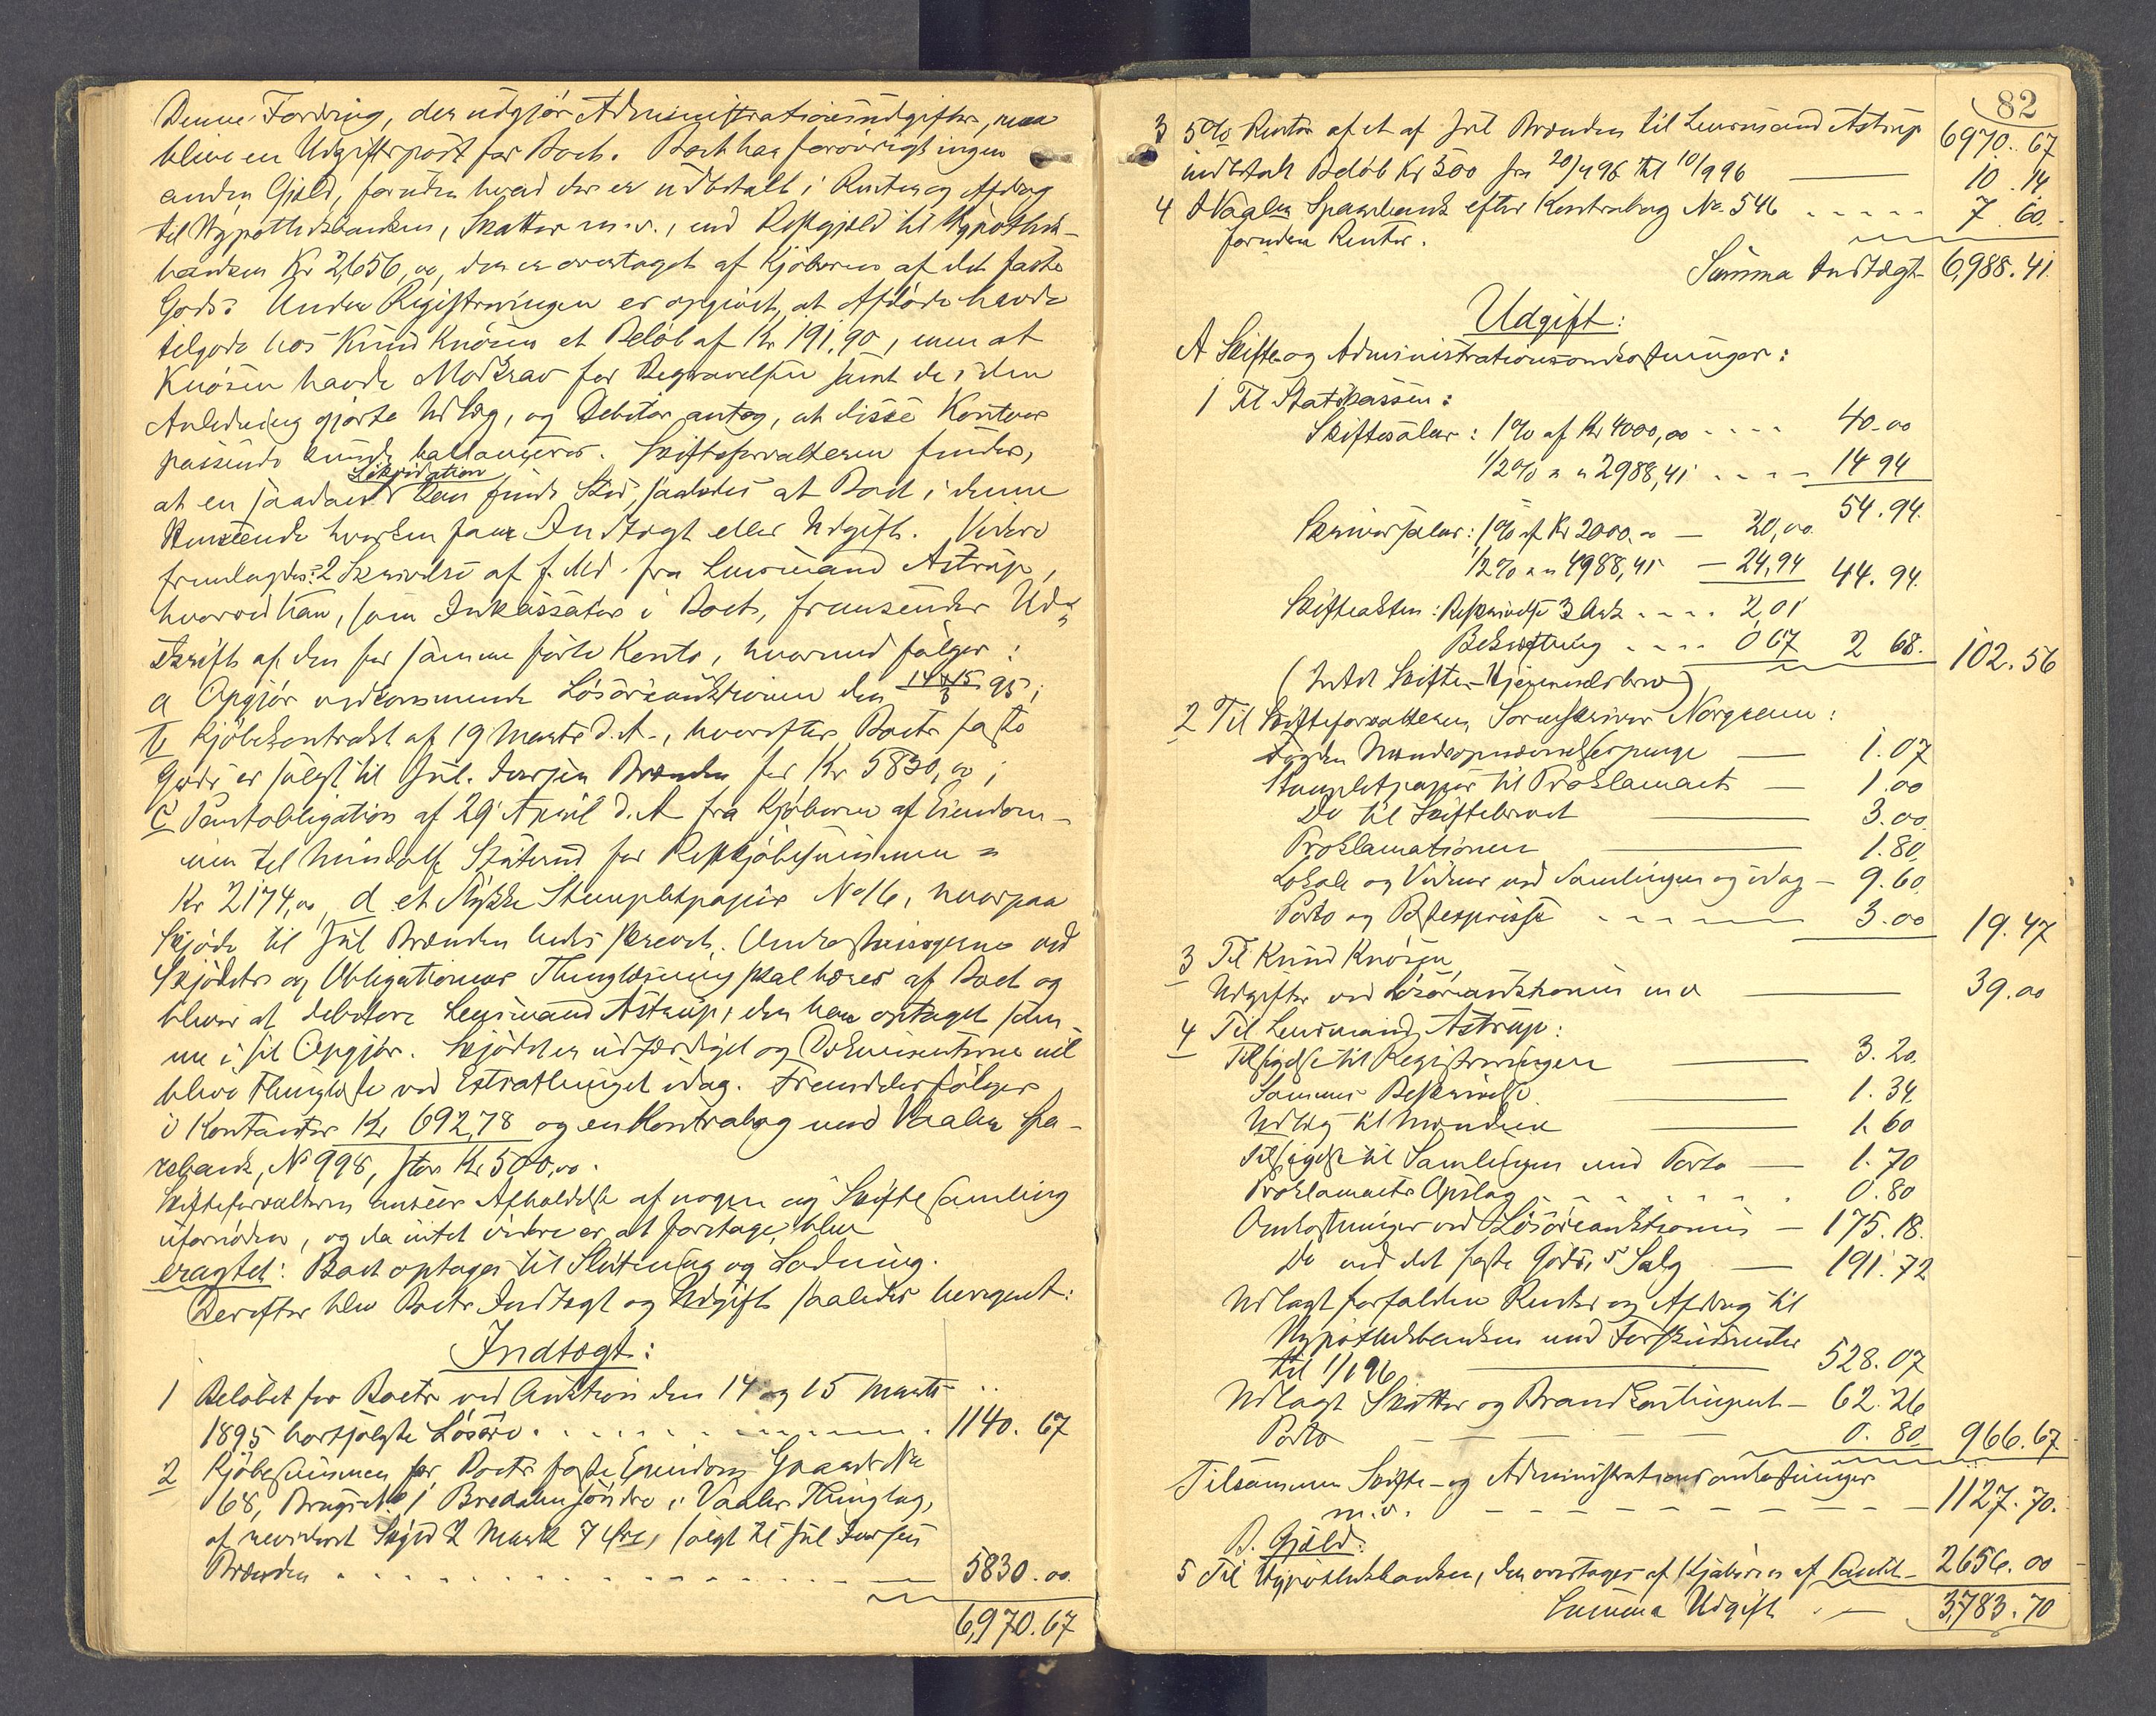 Denne Fordring, der udgjør Administrationsudgifter, maa
blive en Udgiftspost for Boet. Boet har forøvrigt ingen
anden Gjæld, foruden hvad der er udbetalt i Renter og Afdrag
til Hypothekbanken, Skatter m. v., end Restgjæld til Hypothek-
banken Kr 2,656,00, der er overtaget af Kjøberen af det faste
Gods. Under Registreringen er opgivet, at Afdøde havde
tilgode hos Knud Knøsen et Beløb af Kr 191,90, men at
Knøsen havde Modkrav for Begravelsen samt de i den
Anledning gjorte Udlæg, og Debitor antog, at disse Kontoer
passende kunde ballanceres. Skifteforvalteren finder,
at en saadan Likvidation kan finde Sted, saaledes at Boet i denne
Henseende hverken faar Indtægt eller Udgift. Videre
fremlagdes: 2 Skrivelser af f. Md. fra Lensmand Astrup,
hvorved han, som Inkassator i Boet, fremsender Ud-
skrift af den for samme førte Konto, hvormed følger:
a Opgjør vedkommende Løsøreauktionen den 14 & 15/3 95;
b Kjøbekontrakt af 19 Marts d. A., hvorefter Boets faste
Gods er solgt til Jul. Iversen Brænden for Kr 5830,00;
c Pantobligation af 29 April d. A fra Kjøberen af Eiendom-
men til
for Restkjøbesummen =
Kr 2174,00, d et Stykke Stempletpapir No 16, hvorpaa
Skjøde til Jul Brænden bedes skrevet. Omkostningerne ved
Skjødets og Obligationens Thinglæsning skal bæres af Boet og
bliver at debitere Lensmand Astrup, der har optaget sam-
me i sit Opgjør. Skjødet er udfærdiget og Dokumenterne vil
blive thinglæste ved Extrathinget idag. Fremdeles følger
i Kontanter Kr 692,78 og en Kontrabog med Vaaler Spa-
rebank, No 998, stor Kr 500,00.
Skifteforvalteren anseer Afholdelse af nogen ny Skiftesamling
ufornøden, og da intet videre er at foretage, blev
eragtet: Boet optages til Slutning og Lodning.
Derefter blev Boets Indtægt og Udgift saaledes beregnet:
Indtægt:
1 Beløbet for Boets ved Auktion den 14 og 15 Marts
1895 bortsolgte Løsøre . . . . 1140. 67
2 Kjøbesummen for Boets faste Eiendom Gaards No
68, Brugs No 1 Bredalen søndre i Vaaler Thinglag,
af revideret Skyld 2 Mark 7 Øre, solgt til Jul Iversen
Brænden . . . . 5830.00
6,970.67
82
6970.67
3 5% Renter af et af Jul Brænden til Lensmand Astrup
indbetalt Beløb Kr 500 fra 20/4 96 til 10/9 96 — 10.14
4 I Vaaler Sparebank efter Kontrabog No. 546 . . . . 7.60
foruden Renter.
Summa Indtægt 6,988.41
Udgift:
A Skifte og Administrationsomkostninger:
1 Til Statskassen:
Skiftesalær: 1% af Kr 4000,00 . . . . 40.00
1/2% " " 2988,41 . . . . 14 94
54.94.
Skriversalær: 1% af Kr 2000.00 — 20,00
1/2% " " 4988,41 — 24,94 44.94.
Skifteakten: Beskrivelse 3 Ark . . . . 2,01
Bekræftning . . . . 0 67 2 68. 102.56
(Intet Skifte-Hjemmelsbrev)
2 Til Skifteforvalteren, Sorenskriver Norgreen:
Mændsopnævnelsespenge — 1.07
Stempletpapir til Proklamaet — 1.00
Do til Skiftebrevet — 3.00
Proklamationen — 1.80
Lokale og Vidner ved Samlingen og idag — 9.60
Porto og — 3.00 19.47
3 Til Knud Knøsen
Udgifter ved Løsøreauktionen m v — 39.00
4 Til Lensmand Astrup:
Tilsigelse til Registreringen — 3.20
Sammes Beskrivelse — 1.34
Udlæg til Mændene — 1.60
Tilsigelse til Samlingen med Porto — 1.70
Proklamaets Opslag . . . . 0.80
Omkostninger ved Løsøreauktionen — 175.18.
Do ved det faste Gods's Salg — 191.72
Udlagt forfaldne Renter og Afdrag til
Hypothekbanken med Forskudsrenter
til 1/1 96 — 528.07
Udlagt Skatter og Brandkontingent — 62.26
Porto — 0.80 966.67
Tilsammen Skifte- og Administrationsomkostninger
m. v. — 1127.70.
B. Gjæld.
5 Til Hypothekbanken, der overtages af Kjøberen af Pantet — 2656.00
Summa Udgift — 3,783.70